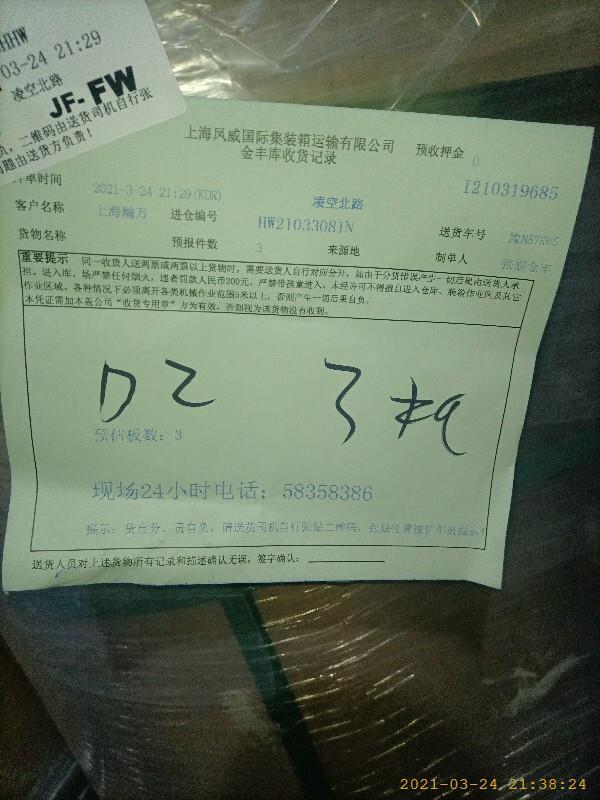 03-24 21:29
凌空北路
JF-FW
二维码由送货司机自行张
题由送货方负责!
上海凤威国际集装箱运输有限公司
金丰库收货记录
预收押金 0
I210319685
单时间 2021-3-24 21:29(KDR) 凌空北路
客户名称 上海瀚万 进仓编号 HW21033081N 送货车号
货物名称 预报件数 3 来源地 制单人
重要提示 同一收货人送两票或两票以上货物时,需要送货人自行对应分开,如由于分货错误产生一切后果由送货人承
担。进入库、场严禁任何烟火,违者罚款人民币200元。严禁带孩童进入。未经许可不得擅自进入仓库、装箱作业区及其它
作业区域,各种情况下必须离开各类机械作业范围5米以上,否则产生一切后果自负。
本凭证需加本盖公司"收货专用章"方为有效,否则视为该货物没有收到。
预估板数: 3
现场24小时电话: 58358386
提示: 货自分、责自负,请送货司机自行张贴二维码,张贴位置按
送货人员对上述货物所有记录和描述确认无误,签字确认:
2021-03-24 21:38:24